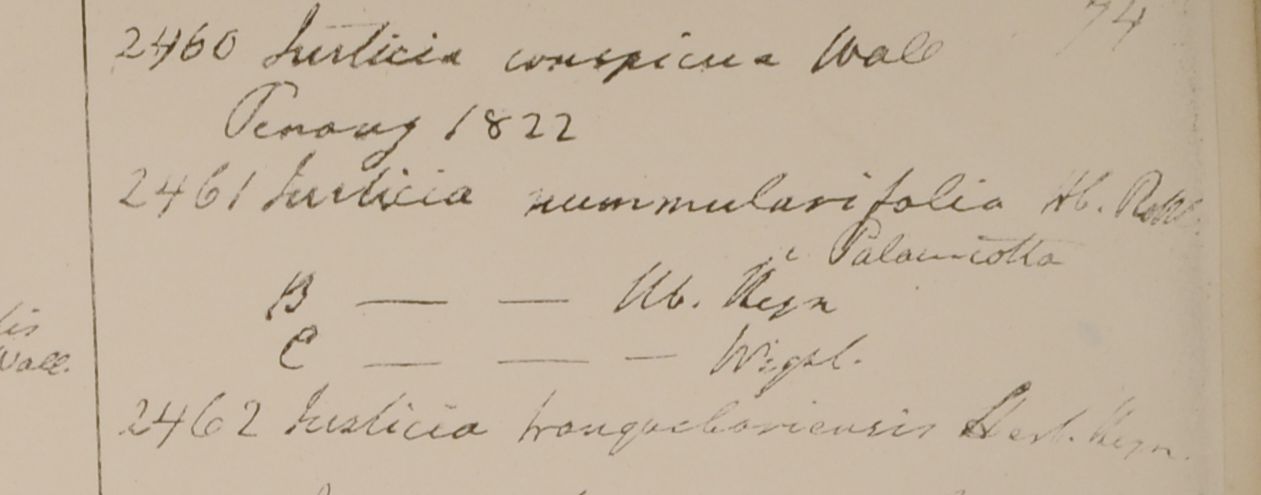 74
2460 Justicia conspicua Wall
Penang 1822
2461 Justicia nummularifolia Hb. Rottl.
Palamcotta
B — — Hb. Heyn
C — — — Wight.
2462 Justicia tranquebariensis Herb. Heyn.
lis
Wall.